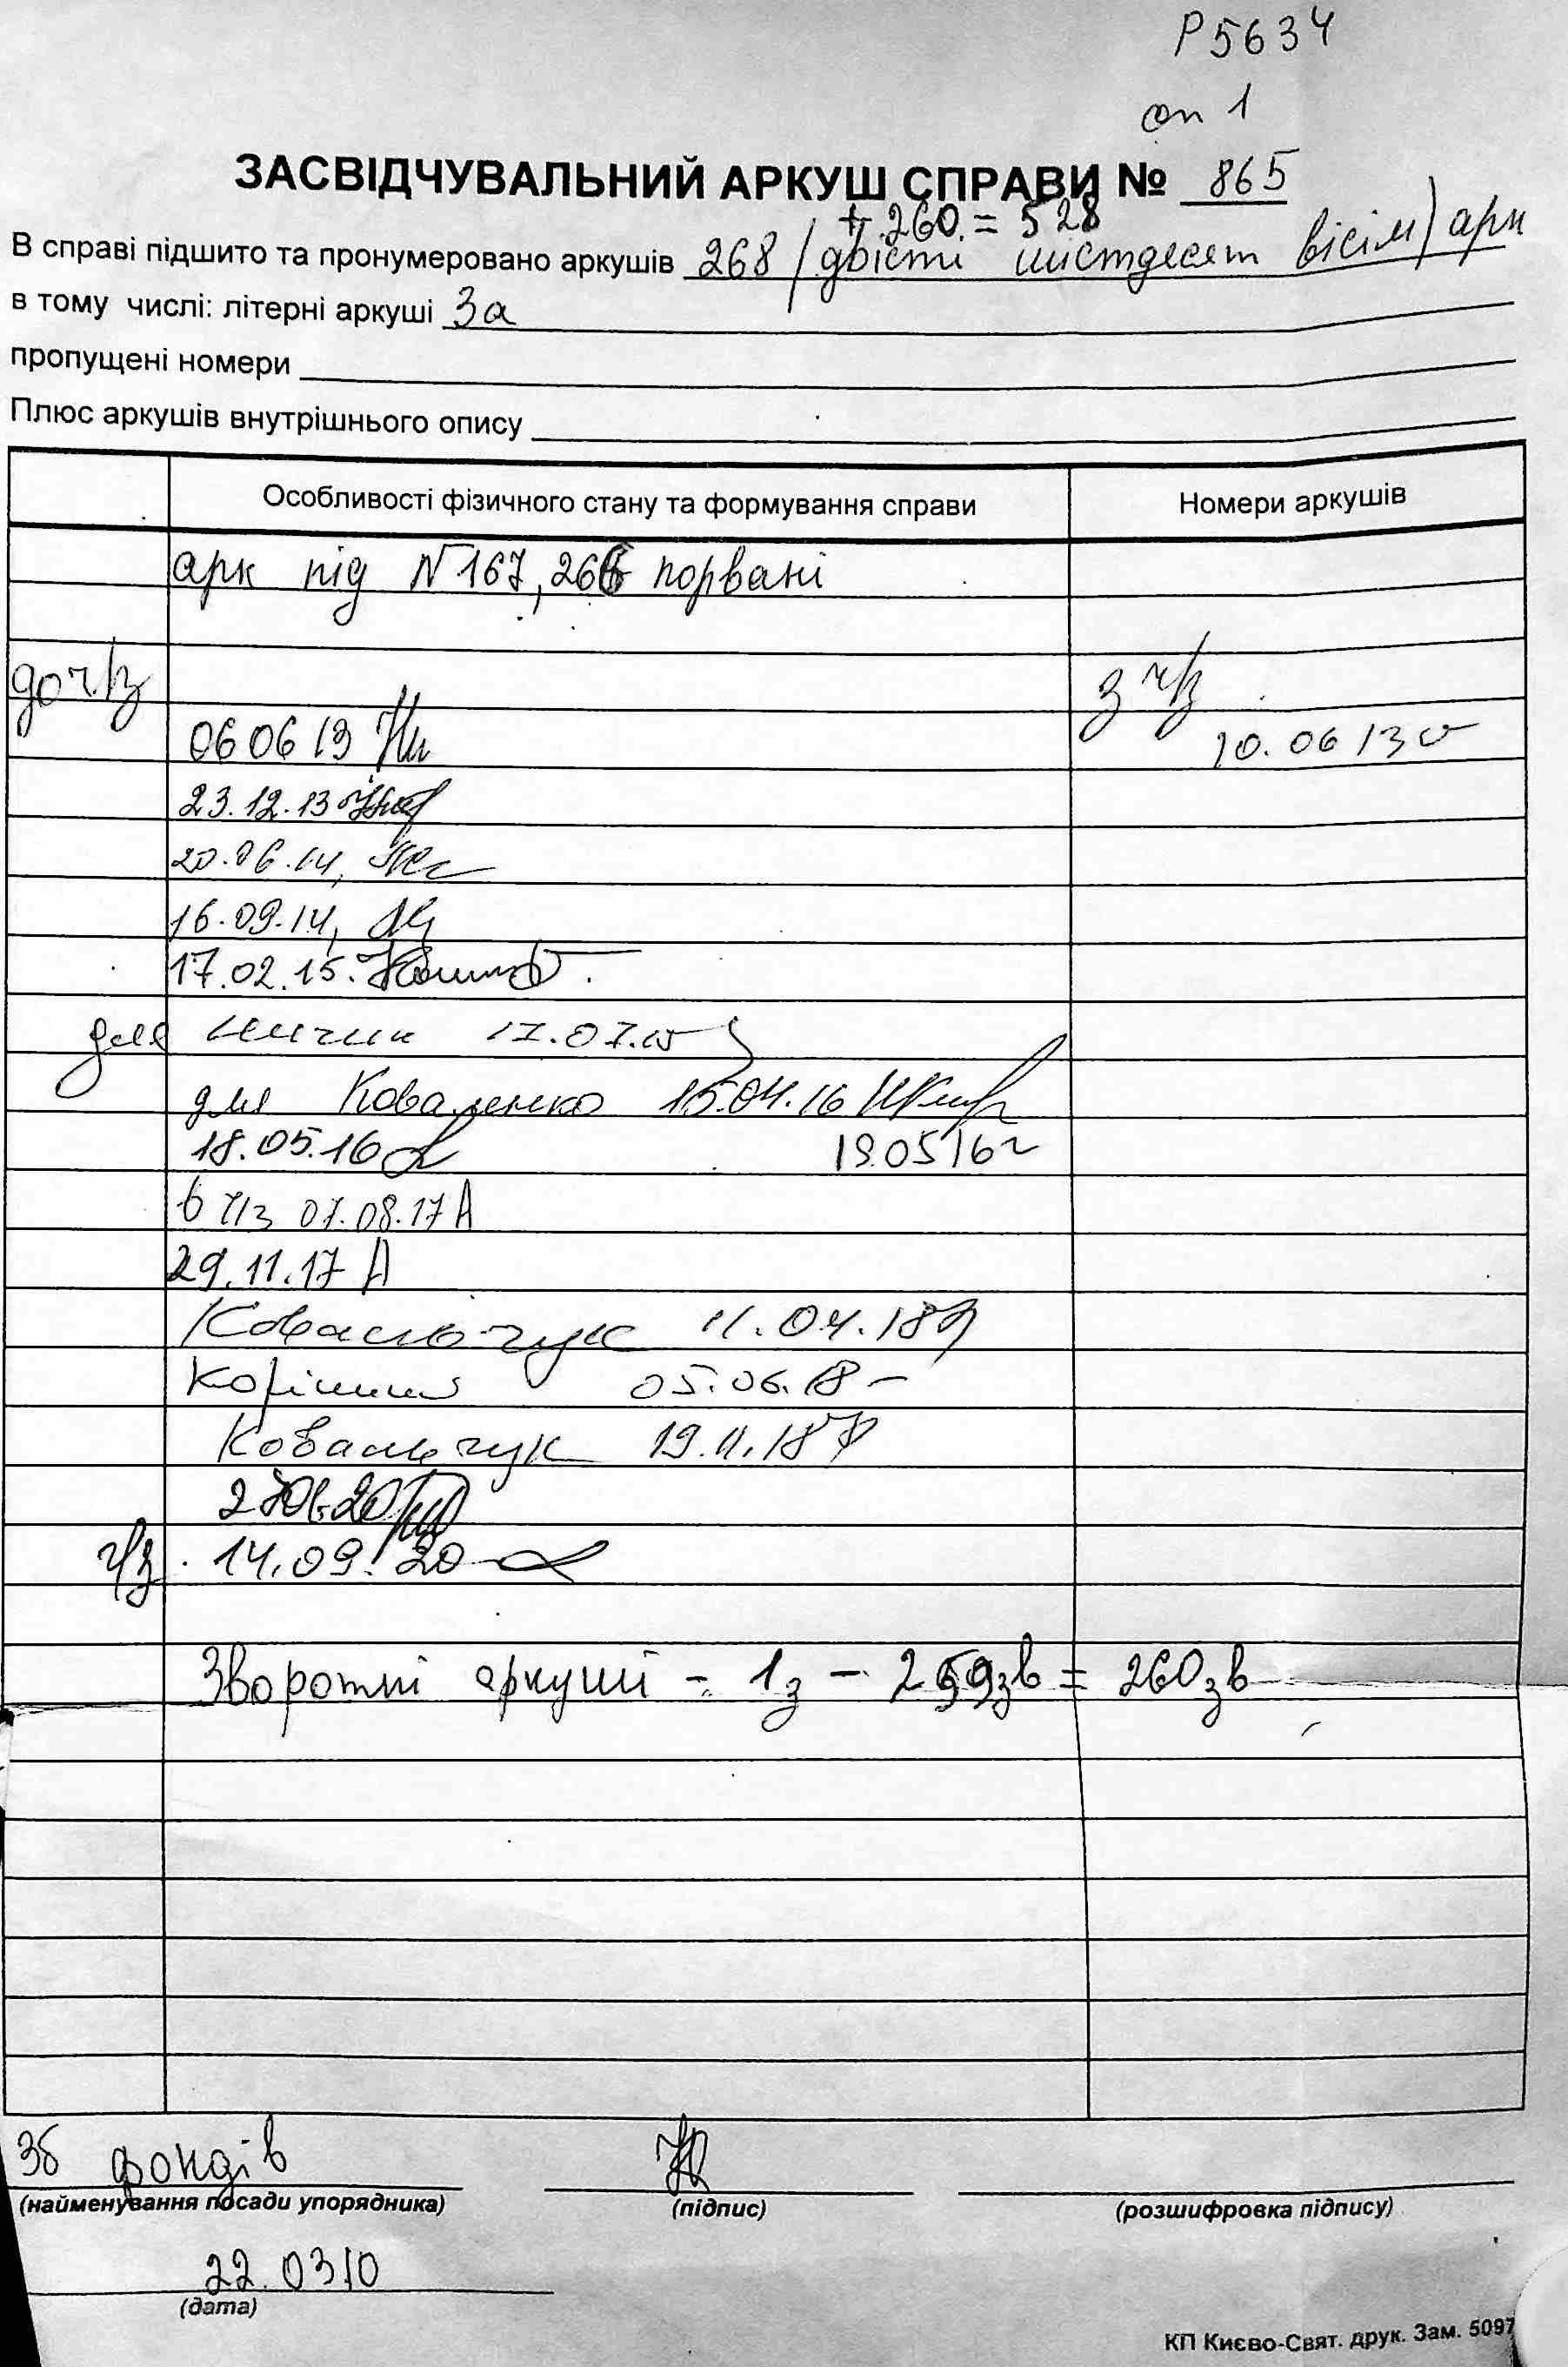 Р5634
оп 1
ЗАСВІДЧУВАЛЬНИЙ АРКУШ СПРАВИ № 865
+ 260. = 528
В справі підшито та пронумеровано аркушів 268 / двісті шістдесят вісім) арк
в тому числі: літерні аркуші 3а
пропущені номери
Плюс аркушів внутрішнього опису
Особливості фізичного стану та формування справи Номери аркушів
арк під N 167, 266 порвані
до ч/з з ч/з
06 06 13 10. 06 13
23.12.13
20.06.14,
16.09.14,
17.02.15.
для 17.07.15
для Коваленко 15.04.16
18.05.16 19.05 16
в ч/з 07.08.17 А
29.11.17 А
Ковальчук 11.04.18
05.06.18 –
Ковальчук 19.11.18
ч/з. 14.09.20
Зворотні аркуші - 1з - 259зв = 260зв
Зб фондів
(найменування посади упорядника) (підпис) (розшифровка підпису)
22.0310
(дата)
КП Києво-Свят. друк. Зам. 5097